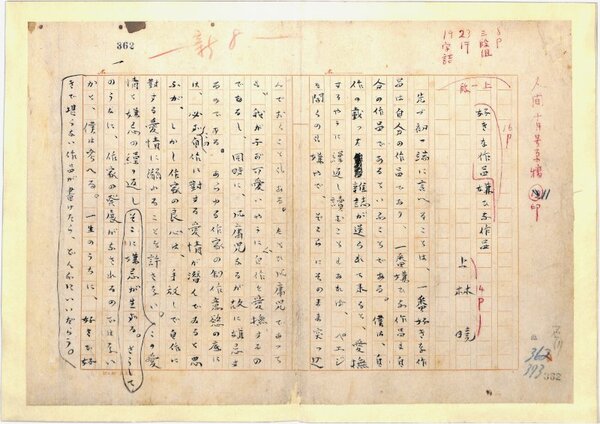 人間十月号原稿
印
8P
三段組
23行
19字詰
上一段
16P
好きな作品嫌ひな作品
上林暁
14P
先づ初つ端に言へることは、一番好きな作
品は自分の作品であり、一番嫌ひな作品も自
分の作品であるといふことである。僕は、自
作の載つた雑誌が送られて来ると、愛撫
するやうに繰返し読むこともあれば、ペエジ
を開くのも嫌やで、そこらにそのまま突つ込
んでおくこともある。たとひ凡庸児であつて
も、我が子が可愛いやうに自作を愛撫するの
であるし、同時に、凡庸児なるが故に嫌忌す
るのである。あらゆる作家の創作意慾の底に
は、必ず自作に対する愛情が潜んでゐると思
ふが、しかし作家の良心は、手放しで自作に
対する愛情に溺れることを許さない。この愛
情と嫌忌の繰り返しそこに嫌忌が生れる。さうして
のうちに、作家の発展がなされるのではない
かと、僕は考へる。一生のうちに、好きで好
きで堪らない作品が書けたら、どんなにいいだらう。
新8
362
362
393
362